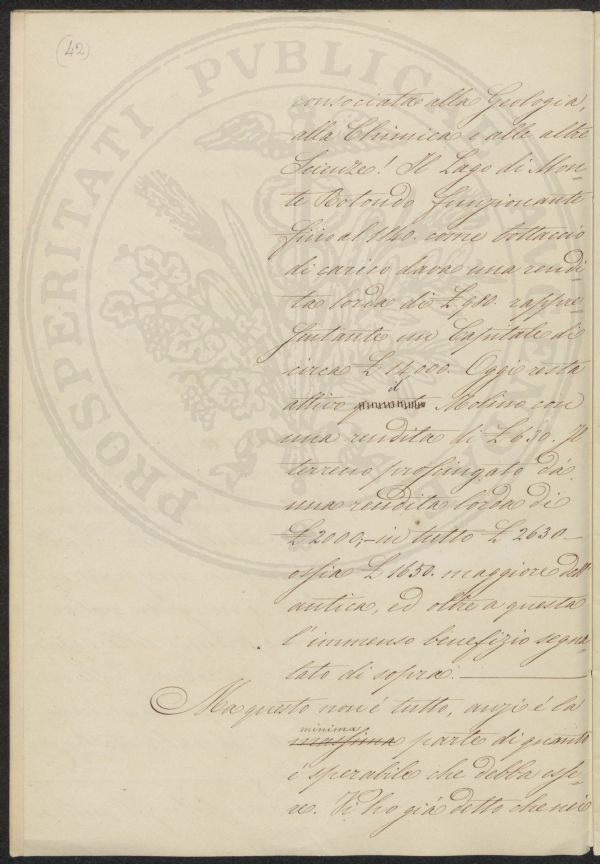 (42)
consociata alla Geologia,
alla Chimica e alle altre
Scienze! Il Lago di Mon-
te Rotondo funzionante
fino al 1840. come bottaccio
di carico dava una rendi-
ta lorda di £ 980. rappre-
sentante un Capitale di
circa £ 14,000. Oggi resta
attivo il Molino con
una rendita di £ 630. Il
terreno prosciugato dà
una rendita lorda di
£ 2000,- in tutto £ 2630-
ossia £ 1650. maggiore dell'
antica, ed oltre a questa
l'immenso benefizio segna-
lato di sopra.
Ma questo non è tutto, anzi è la
minima
massima parte di quanto
è sperabile che debba esse-
re. Vi ho già detto che nei
PROSPERITATI PVBLICAE AVGENDAE